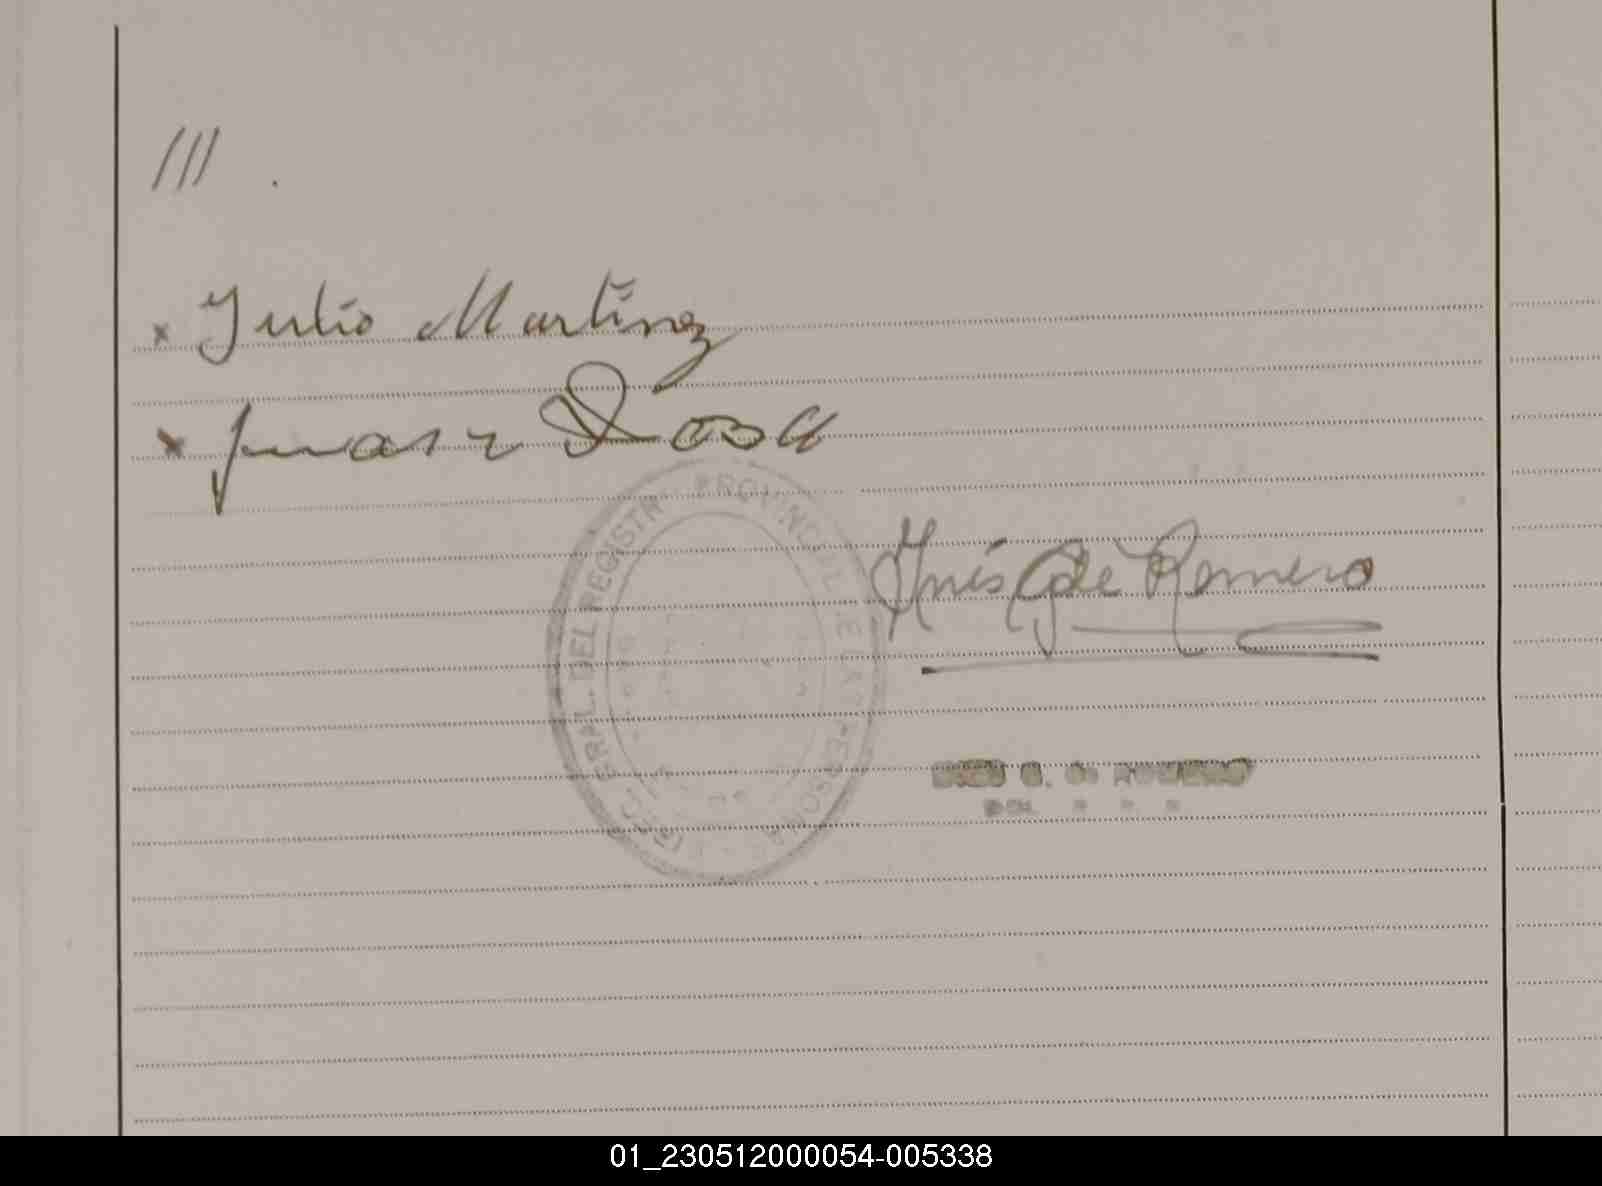 ///.
x Julio Martínez
x Juan Rosa
Inés G de Romero
DIRECC GRAL. DEL REGISTR PROVINCIAL DE LAS PERSONAS
INES G. DE ROMERO
01_230512000054-005338